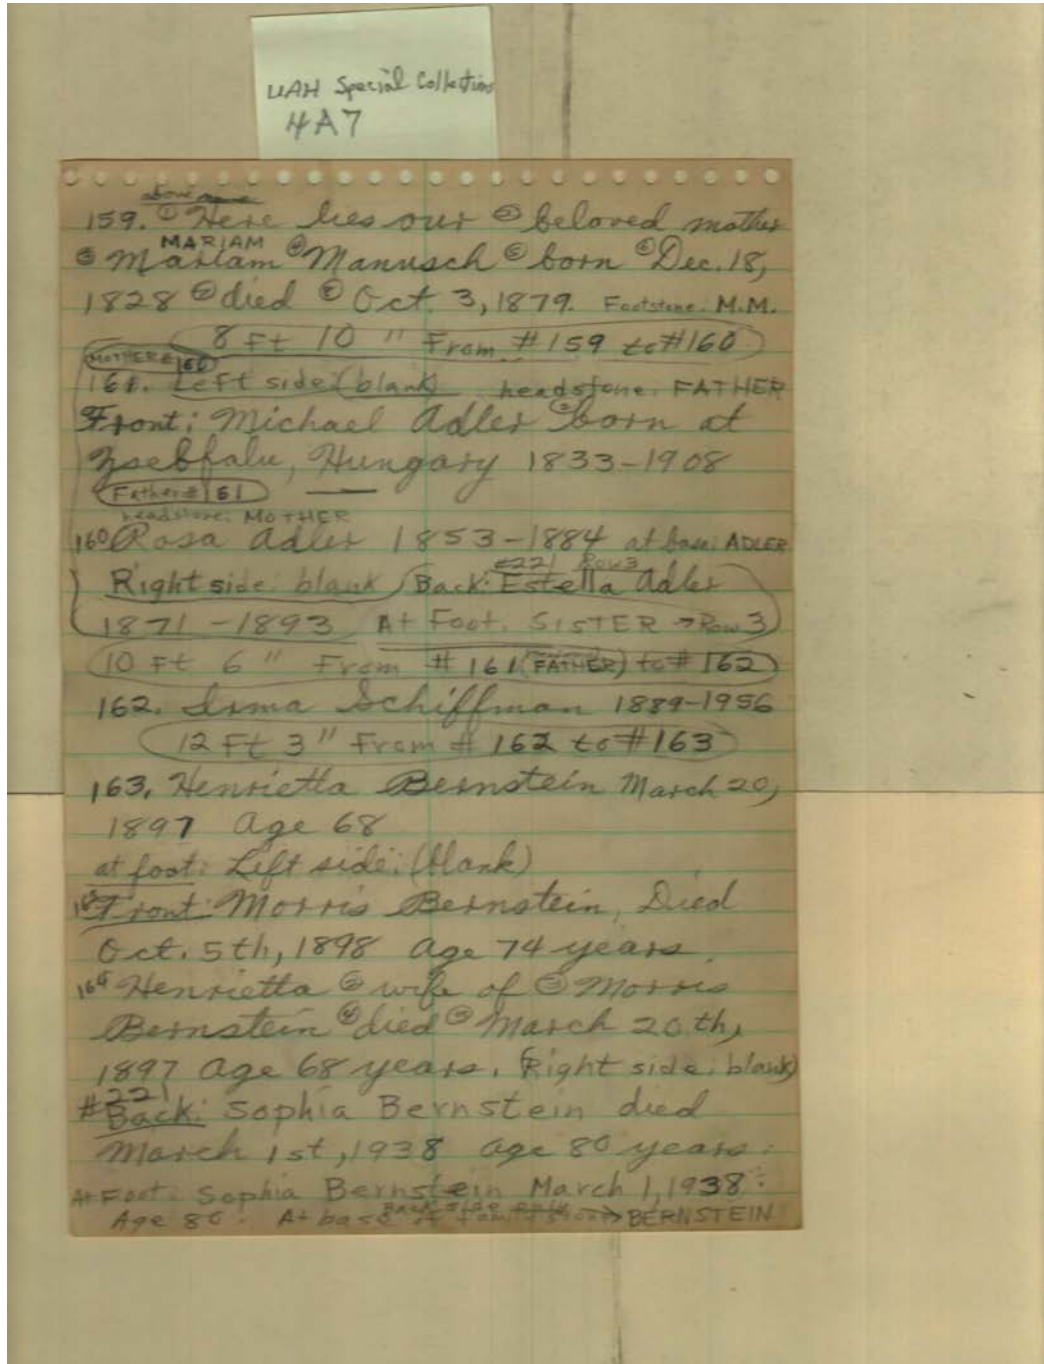 UAH Special Collections
4A7
above name
159. ① Here lies our ② beloved mother
MARIAM
③ Mariam ④ Manusch ⑤ born ⑥ Dec. 18,
1828 ⑦ died ⑧ Oct. 3, 1879. Footstone: M.M.
8 Ft 10 " From #159 to #160
MOTHER # 160
161. Left side: (blank) headstone: FATHER
Front: Michael Adler ② born at
Zsebfalu, Hungary 1833-1908
Father # 161
headstone: MOTHER
160 Rosa Adler 1853-1884 at base: ADLER
#221 Row 3
Right side: blank Back: Estella Adler
1871-1893 At Foot: SISTER → Row 3
10 Ft 6 " From # 161 (FATHER) to # 162
162. Irma Schiffman 1889-1956
12 Ft 3" From # 162 to #163
163. Henrietta Bernstein March 20,
1897 Age 68
at foot: Left side: (blank)
Front: Morris Bernstein, Died
Oct. 5th, 1898 age 74 years.
164 Henrietta ② wife of ③ Morris
Bernstein ④ died ⑤ March 20th,
1897 age 68 years. (Right side: blank)
#221
Back: Sophia Bernstein died
March 1st, 1938 age 80 years.
At Foot: Sophia Bernstein March 1, 1938.
Age 80. At base of family → BERNSTEIN